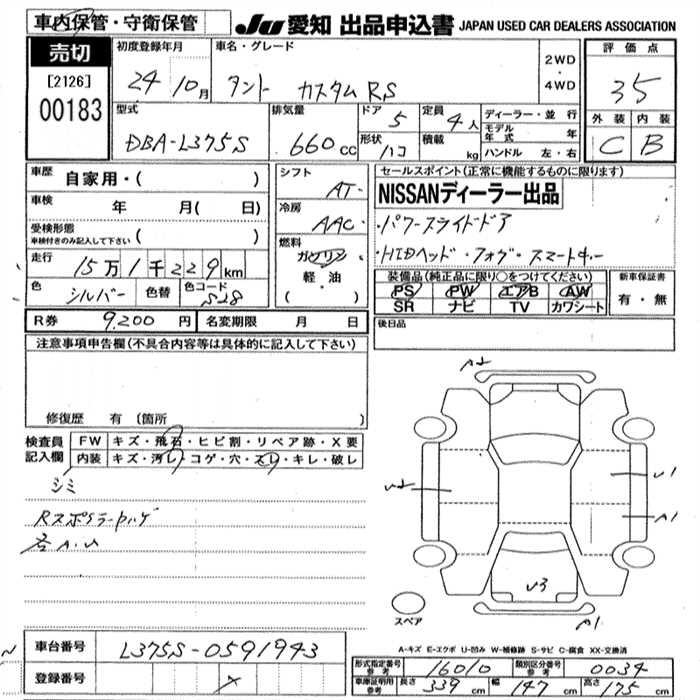 車内保管・守衛保管
JU 愛知 出品申込書 JAPAN USED CAR DEALERS ASSOCIATION
売切
[2126]
00183
初度登録年月
24 10月
車名・グレード
タント カスタムRS
2WD
・
4WD
評価点
35
型式
DBA-L375S
排気量
660cc
ドア 5
形状 ハコ
定員 4人
積載 kg
ディーラー・並行
モデル年式 年
ハンドル 左・右
外装 内装
C B
車歴 自家用・( )
車検 年 月( 日)
受検形態
車検付きのみ記入して下さい ( )
走行 15万1千229km
色 シルバー 色替 色コード S28
シフト AT
冷房 AAC
燃料
ガソリン
軽・油
( )
セールスポイント(正常に機能するものに限ります)
NISSANディーラー出品
・パワースライドドア
・HIDヘッド・フォグ・スマートキー
装備品(純正品に限り○をつけてください)
PS PW エアB AW
SR ナビ TV カワシート
新車保証書
有・無
R券 9,200円 名変期限 月 日
後日品
注意事項申告欄(不具合内容等は具体的に記入して下さい)
修復歴 有 (箇所 )
検査員記入欄
FW キズ・飛石・ヒビ割・リペア跡・X要
内装 キズ・汚レ・コゲ・穴・スレ・キレ・破レ
シミ
Rスポイラーハゲ
各A・U
A2
U2
U1
A1
U3
A1
スペア
A-キズ E-エクボ U-凹み W-補修跡 S-サビ C-腐食 XX-交換済
車台番号 L375S-0591943
登録番号
型式指定番号 16010 類別区分番号 0034
車庫証明用参考 長さ 339cm 幅 147cm 高さ 175cm